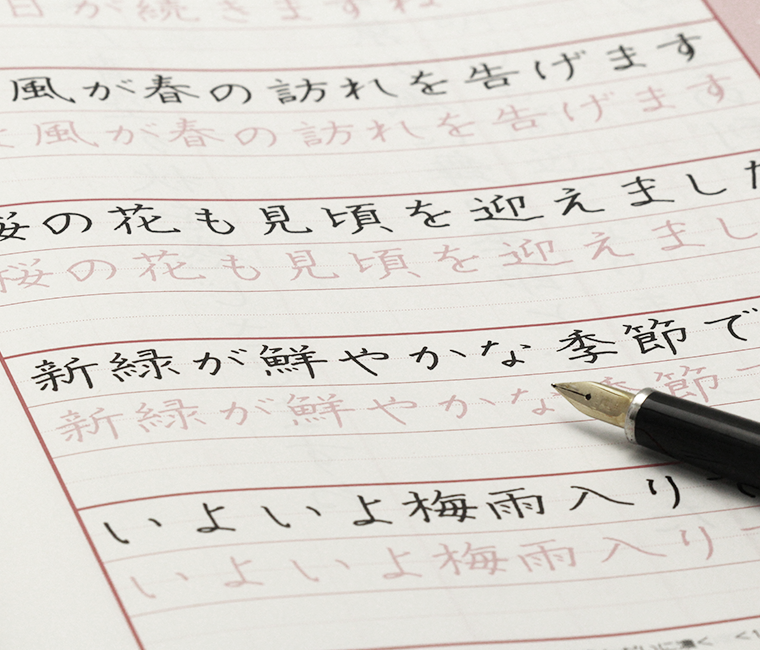 日が続きますね
風が春の訪れを告げます
風が春の訪れを告げます
桜の花も見頃を迎えました
桜の花も見頃を迎えまし
新緑が鮮やかな季節で
新緑が鮮やかな季節
いよいよ梅雨入り
いよいよ梅雨入り